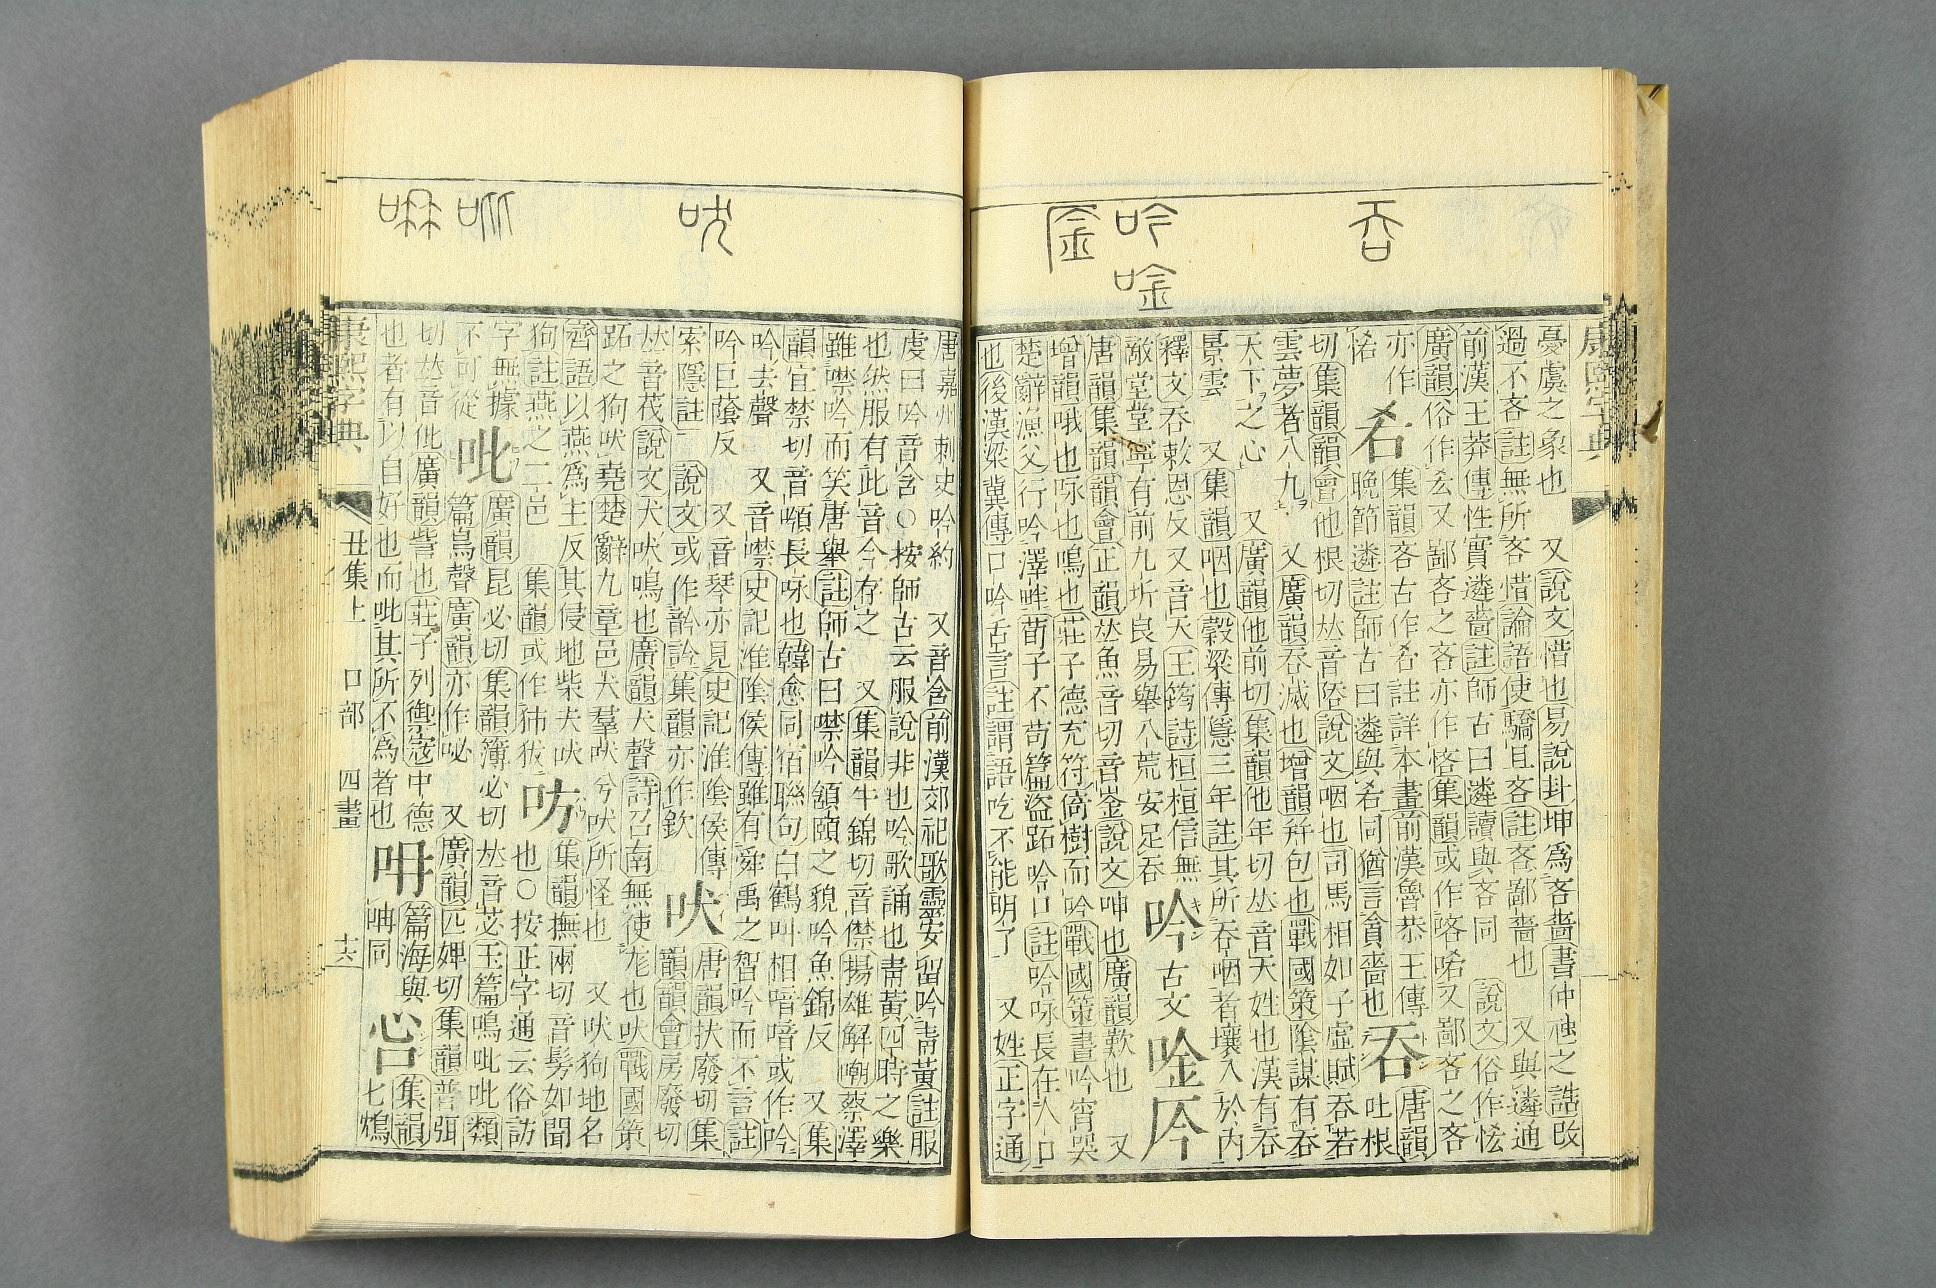 吞
吟
唫
吠
康熙字典
憂虞之象也 又說文惜也易說卦坤爲吝嗇書仲虺之誥改
過不吝註無所吝惜論語使驕且吝註吝鄙嗇也 又與遴通
前漢王莽傳性實遴嗇註師古曰遴讀與吝同 說文俗作恡
廣韻俗作又鄙吝之吝亦作悋集韻或作又鄙吝之吝
亦作 集韻吝古作㕁註詳本畫前漢魯恭王傳 唐韻
㕁 晚節遴註師古曰遴與㕁同猶言貪嗇也 吞 吐根
切集韻韻會他根切𠀤音說文咽也司馬相如子虛賦吞若
雲夢者八九 又廣韻吞滅也增韻幷包也戰國策陰謀有吞
天下之心 又廣韻他前切集韻他年切𠀤音天姓也漢有吞
景雲 又集韻咽也穀梁傳隱三年註其所吞咽者壤入於內
釋文吞敕恩反又音天王筠詩桓桓信無
敵堂堂寧有前九圻良易舉八荒安足吞 吟 古文 唫 㕂
唐韻集韻韻會正韻𠀤魚音切音崟說文呻也廣韻歎也 又
增韻哦也咏也鳴也莊子德充符倚樹而吟戰國策晝吟宵哭
楚辭漁父行吟澤畔荀子不苟篇盜跖吟口註吟咏長在人口
也後漢梁冀傳口吟舌言註謂語吃不能明了 又姓正字通
唐嘉州刺史吟約 又音含前漢郊祀歌靈安留吟靑黃註服
虔曰吟音含○按師古云服說非也吟歌誦也靑黃四時之樂
也然服有此音今存之 又集韻牛錦切音僸揚雄解嘲蔡澤
雖噤吟而笑唐舉註師古曰噤吟頷頤之貌吟魚錦反 又集
韻宜禁切音䫴長咏也韓愈同宿聯句白鶴叫相喑喑或作吟
吟去聲 又音噤史記淮陰侯傳雖有舜禹之智吟而不言註
吟巨蔭反 又音琴亦見史記淮陰侯傳 唐韻扶廢切集
索隱註 說文或作䪩訡集韻亦作欽 吠 韻韻會房廢切
𠀤音茷說文犬吠鳴也廣韻犬聲詩召南無使尨也吠戰國策
跖之狗吠堯楚辭九章邑犬羣吠兮吠所怪也 又吠狗地名
齊語以燕爲主反其侵地柴夫吠 集韻撫兩切音髣如聞
狗註燕之二邑 集韻或作犻㹳 㕫 也○按正字通云俗訪
字無據 廣韻昆必切集韻簿必切𠀤音苾玉篇鳴吡吡類
不可從 吡 篇鳥聲廣韻亦作咇 又廣韻匹婢切集韻普弭
切𠀤音仳廣韻訾也莊子列禦寇中德 篇海與 集韻
也者有以自好也而吡其所不爲者也 㕨 呥同 㕬 七鴆
康熙字典 丑集上 口部 四畫 十六